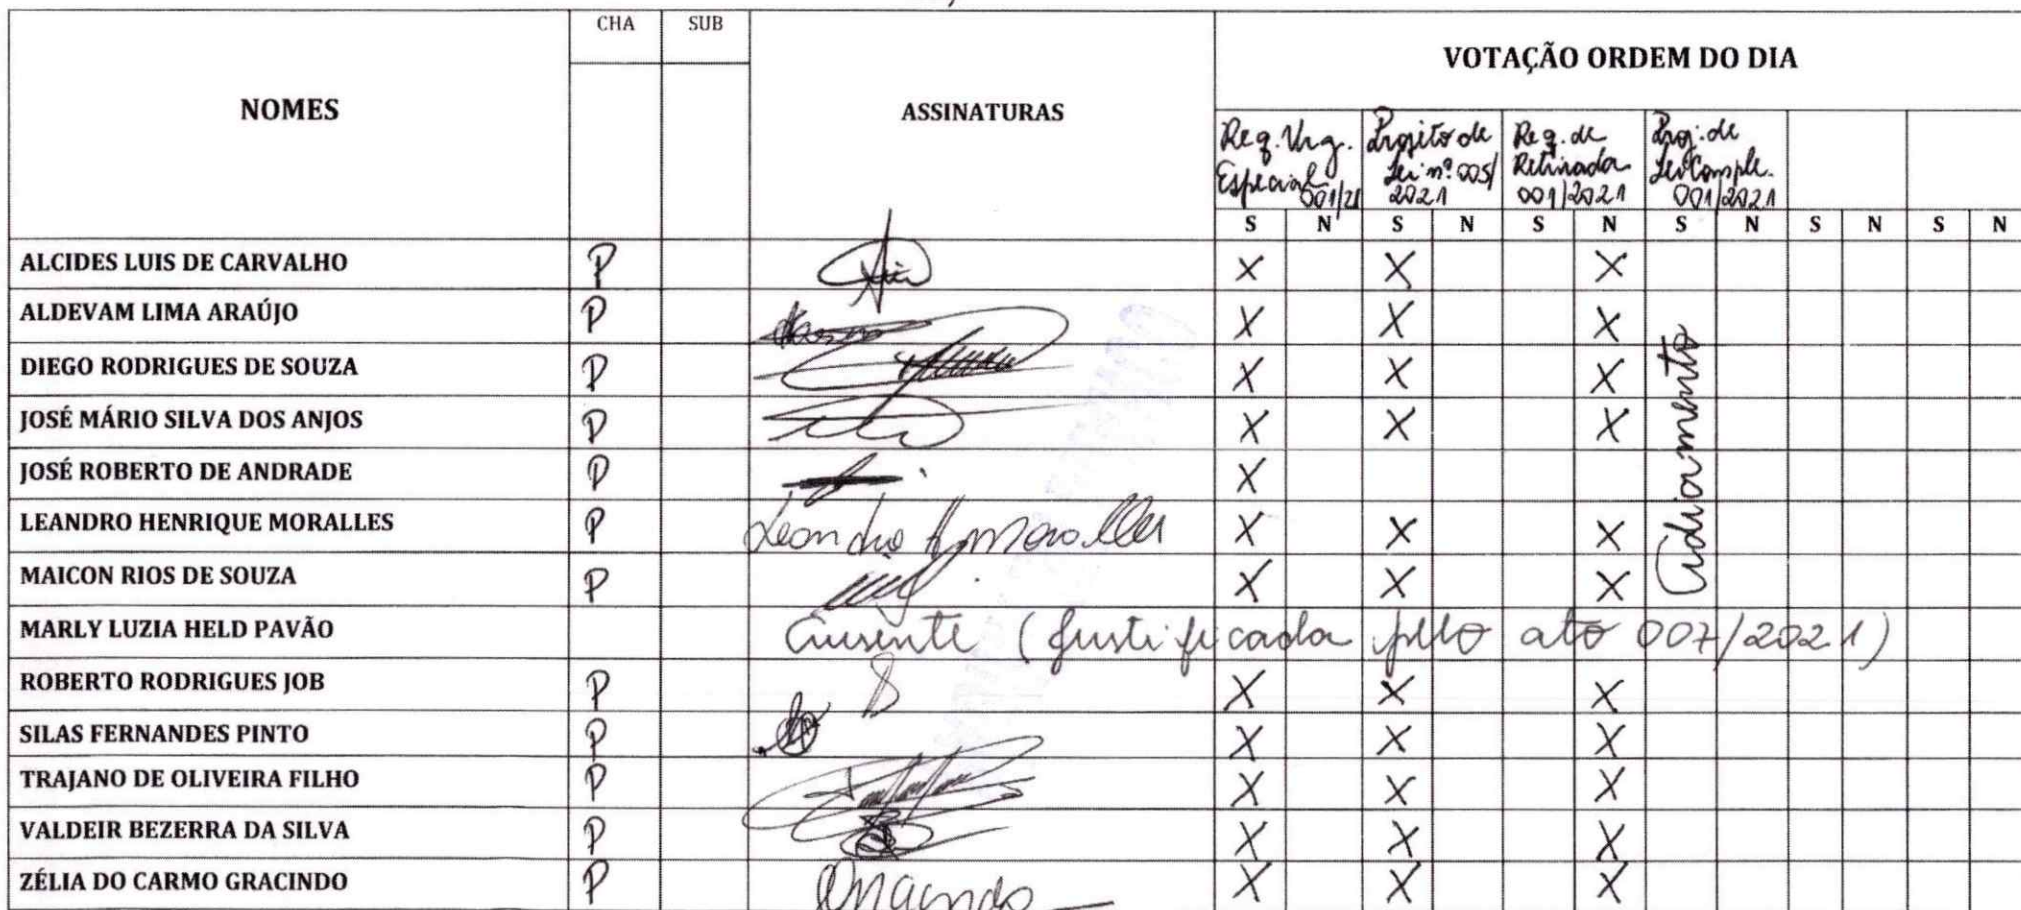 NOMES
CHA
SUB
ASSINATURAS
VOTAÇÃO ORDEM DO DIA
Req. Urg. Especial 001/21
Projeto de Lei nº 005/2021
Req. de Retirada 001/2021
Proj. de Lei Comple. 001/2021
S N S N S N S N S N S N
ALCIDES LUIS DE CARVALHO P X X X
ALDEVAM LIMA ARAÚJO P X X X
DIEGO RODRIGUES DE SOUZA P X X X
JOSÉ MÁRIO SILVA DOS ANJOS P X X X
JOSÉ ROBERTO DE ANDRADE P X
LEANDRO HENRIQUE MORALLES P Leandro H Moralles X X X
MAICON RIOS DE SOUZA P X X X
Adiamento
MARLY LUZIA HELD PAVÃO Ausente (justificada pelo ato 007/2021)
ROBERTO RODRIGUES JOB P X X X
SILAS FERNANDES PINTO P X X X
TRAJANO DE OLIVEIRA FILHO P X X X
VALDEIR BEZERRA DA SILVA P X X X
ZÉLIA DO CARMO GRACINDO P Gracindo X X X